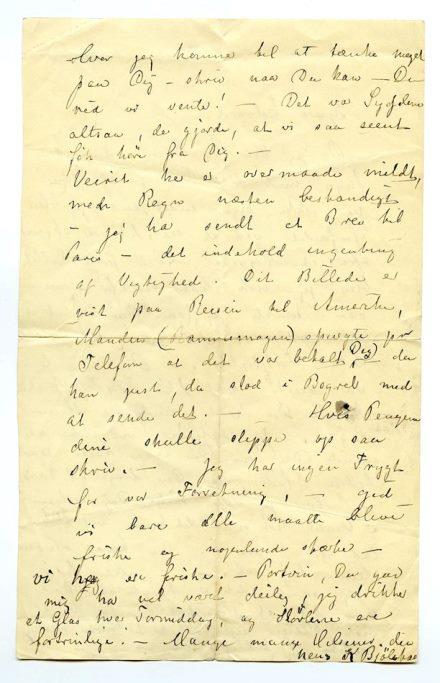 jeg komme til at tænke meget
paa Dig – skriv naar Du kan – Du
ved vi vente! – Det var
altsaa, de gjorde, at vi saa seent
fik høre fra Dig. –
Veiret her er overmaade mildt,
med Regn næsten bestandigt
– jeg har sendt et Brev til
Paris – det indeholdt ingenting
af Vigtighed. Dit Billede er
vist paa Reisen til Amerika,
Manden (Rammemageren) spurgte pr
Telefon at det var betalt (Dig) da
han just, da stod i Begreb med
at sende det. – Hvis Pengene
dine skulle slippe op saa
skriv. – Jeg har ingen Frygt
for vor Forretning, – gid
vi bare alle maatte blive
friske og nogenlunde –
vi er friske. – Portvin, Du gav
mig har vel været deilig, jeg drikker
et Glas hver Formiddag, og ere
fortrinlige. – Mange mange Hilsener din
K